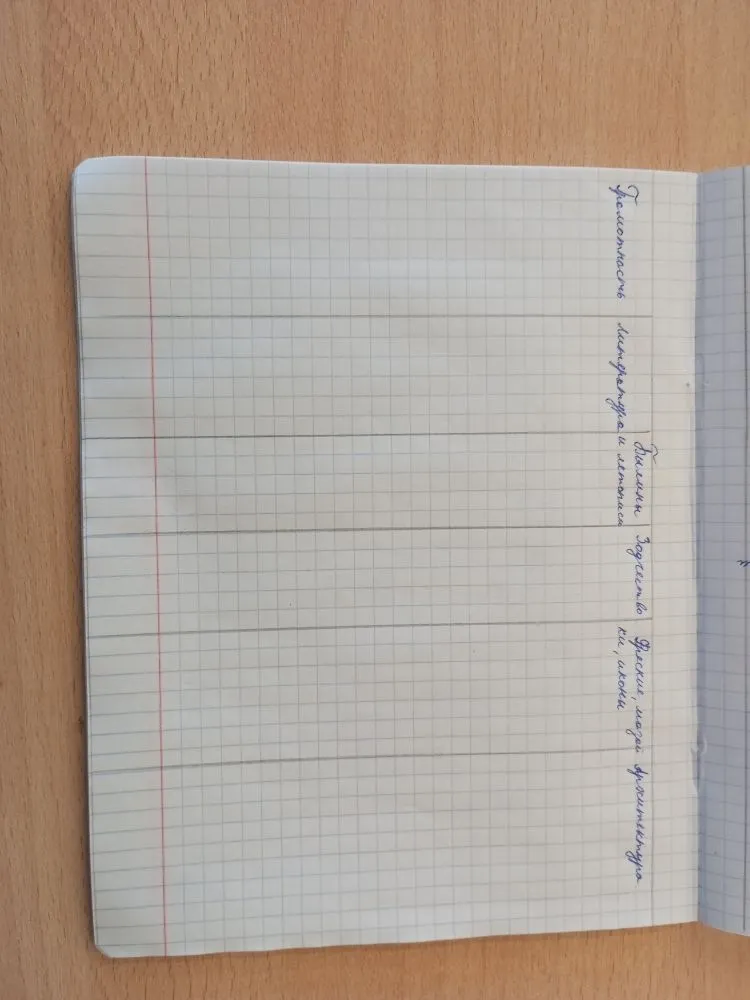 Грамотность
литература
Былины
и летописи
Зодчество
Фрески, мозаи
ки, иконы
Архитектура